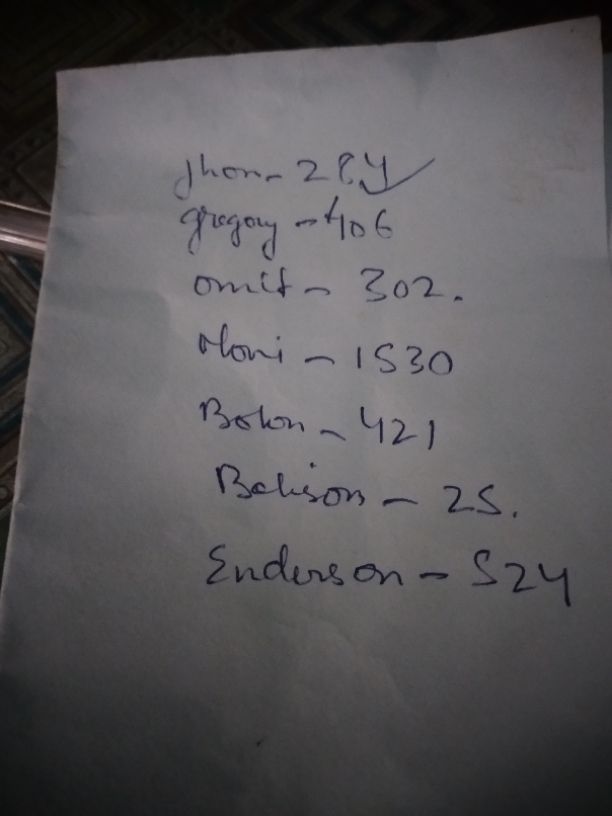 Jhon - 284
gregory - 406
omit - 302.
Moni - 1530
Bolon - 421
- 25.
Enderson - 524